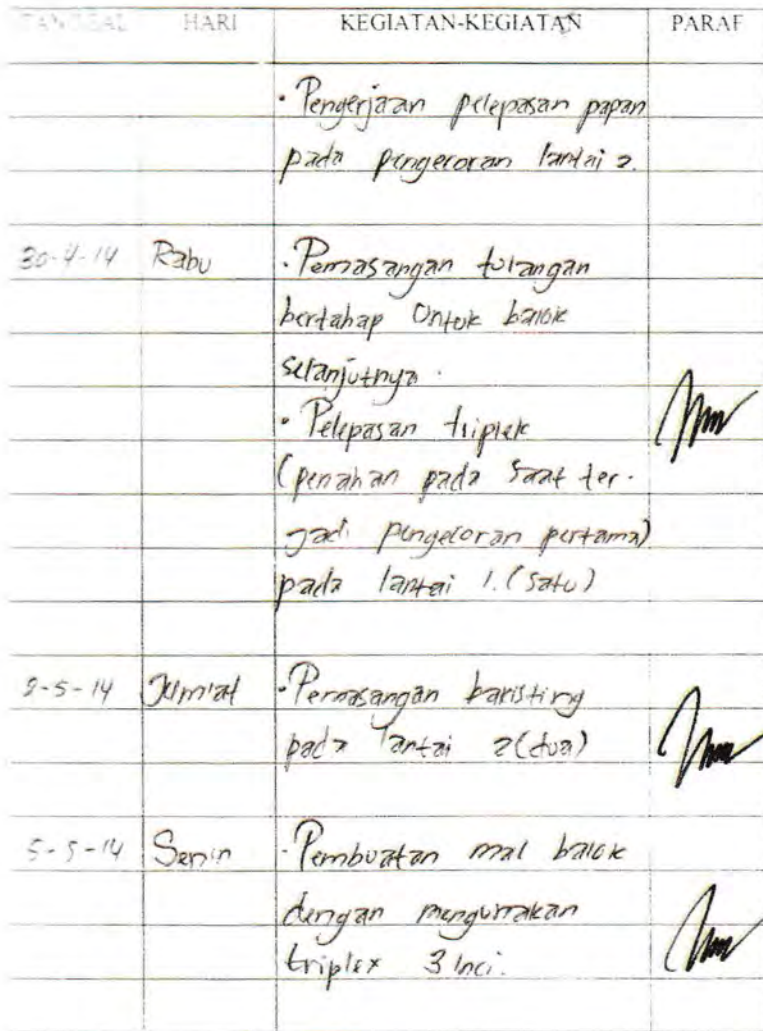 TANGGAL HARI KEGIATAN-KEGIATAN PARAF
· Pengerjaan pelepasan papan
pada pengecoran lantai 2.
30-4-14 Rabu · Pemasangan tulangan
bertahap Untuk balok
selanjutnya.
· Pelepasan triplek
(penahan pada saat ter-
jadi pengecoran pertama)
pada lantai 1. (Satu)
2-5-14 Jum'at · Pemasangan bakisting
pada lantai 2 (dua)
5-5-14 Senin · Pembuatan mal balok
dengan menggunakan
triplex 3 Inci.